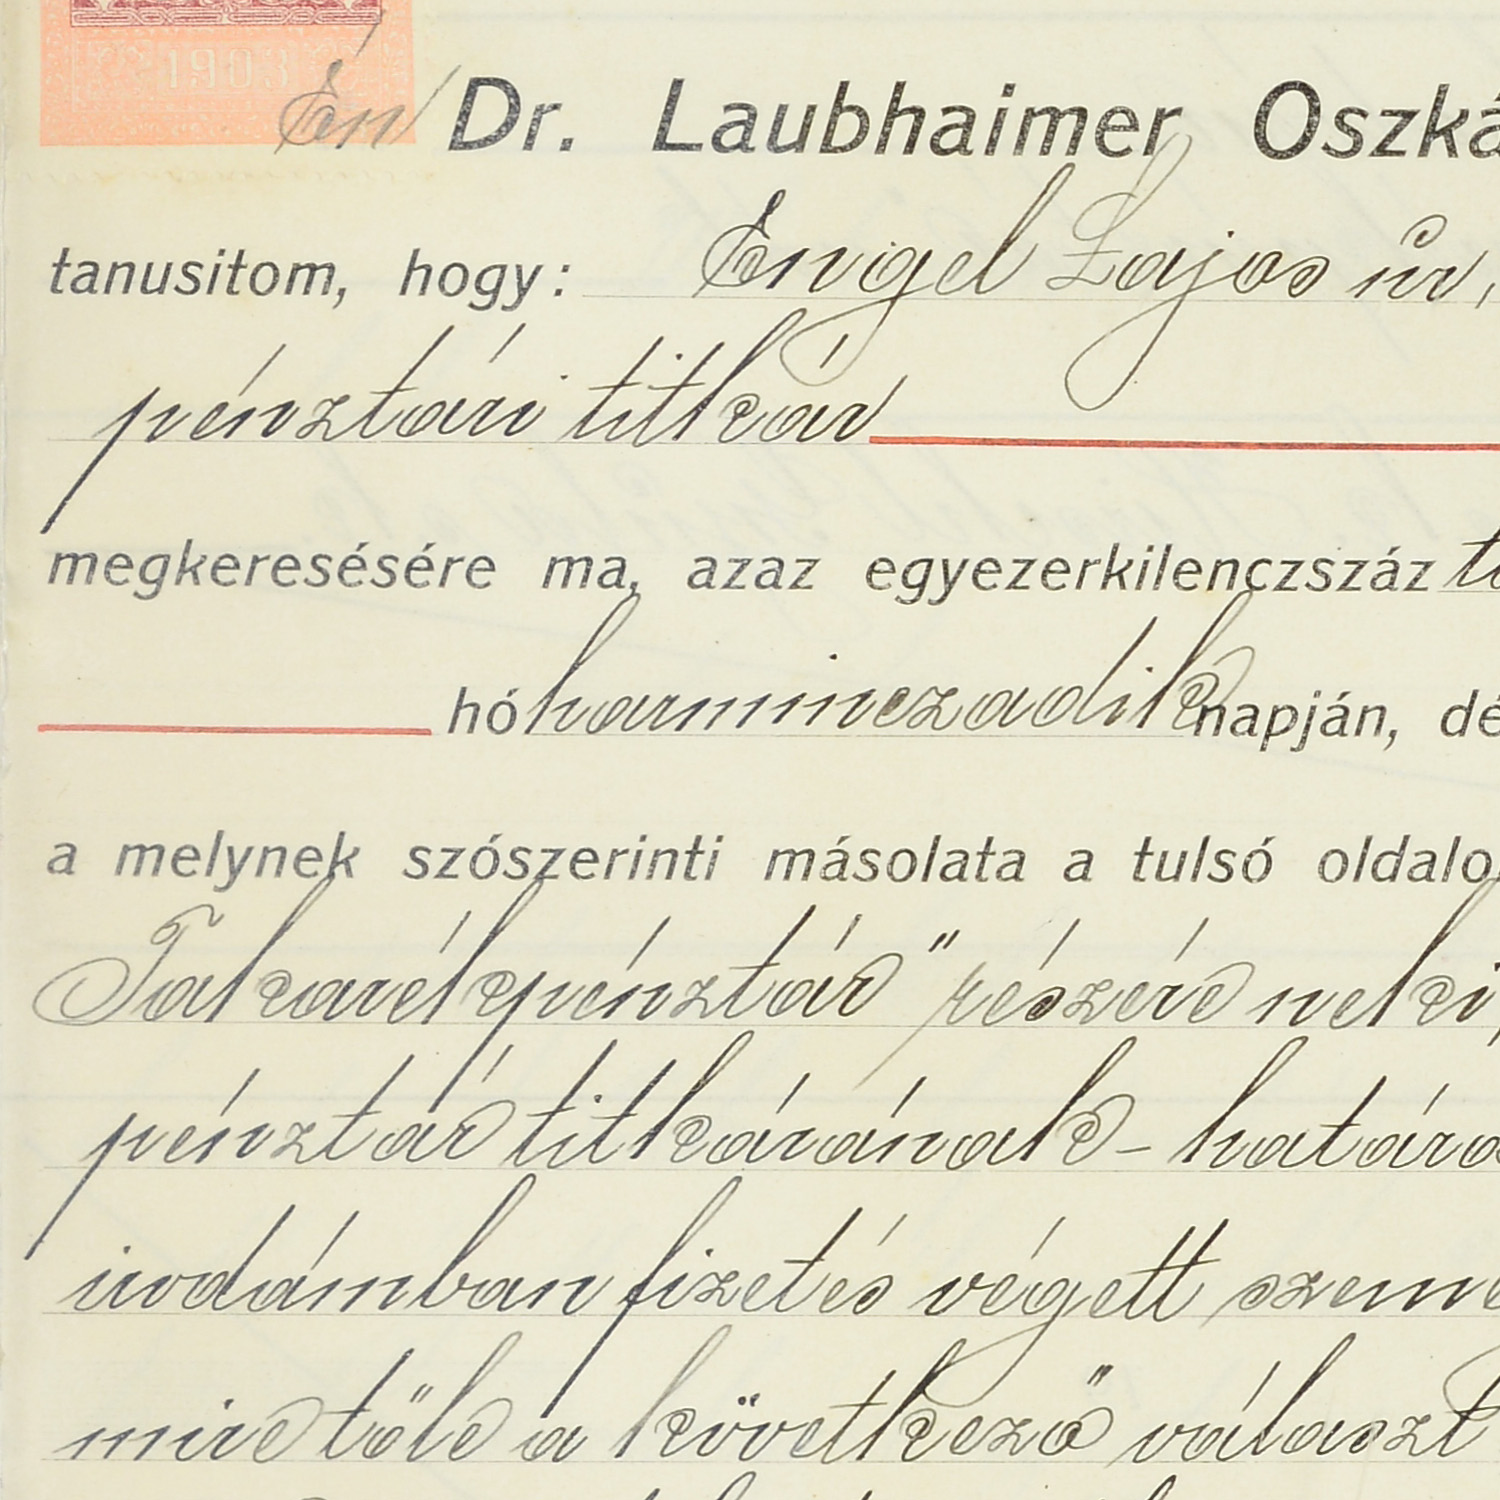 1903
Én Dr. Laubhaimer Oszká
tanusitom, hogy: Engel Lajos úr,
pénztári titkár
megkeresésére ma, azaz egyezerkilenczszáz
hó harminczadik napján, dé
a melynek szószerinti másolata a tulsó oldalo
Takarékpénztár" részére neki,
pénztár titkárának - határo
irodámban fizetés végett szemé
mire tőle a következő választ